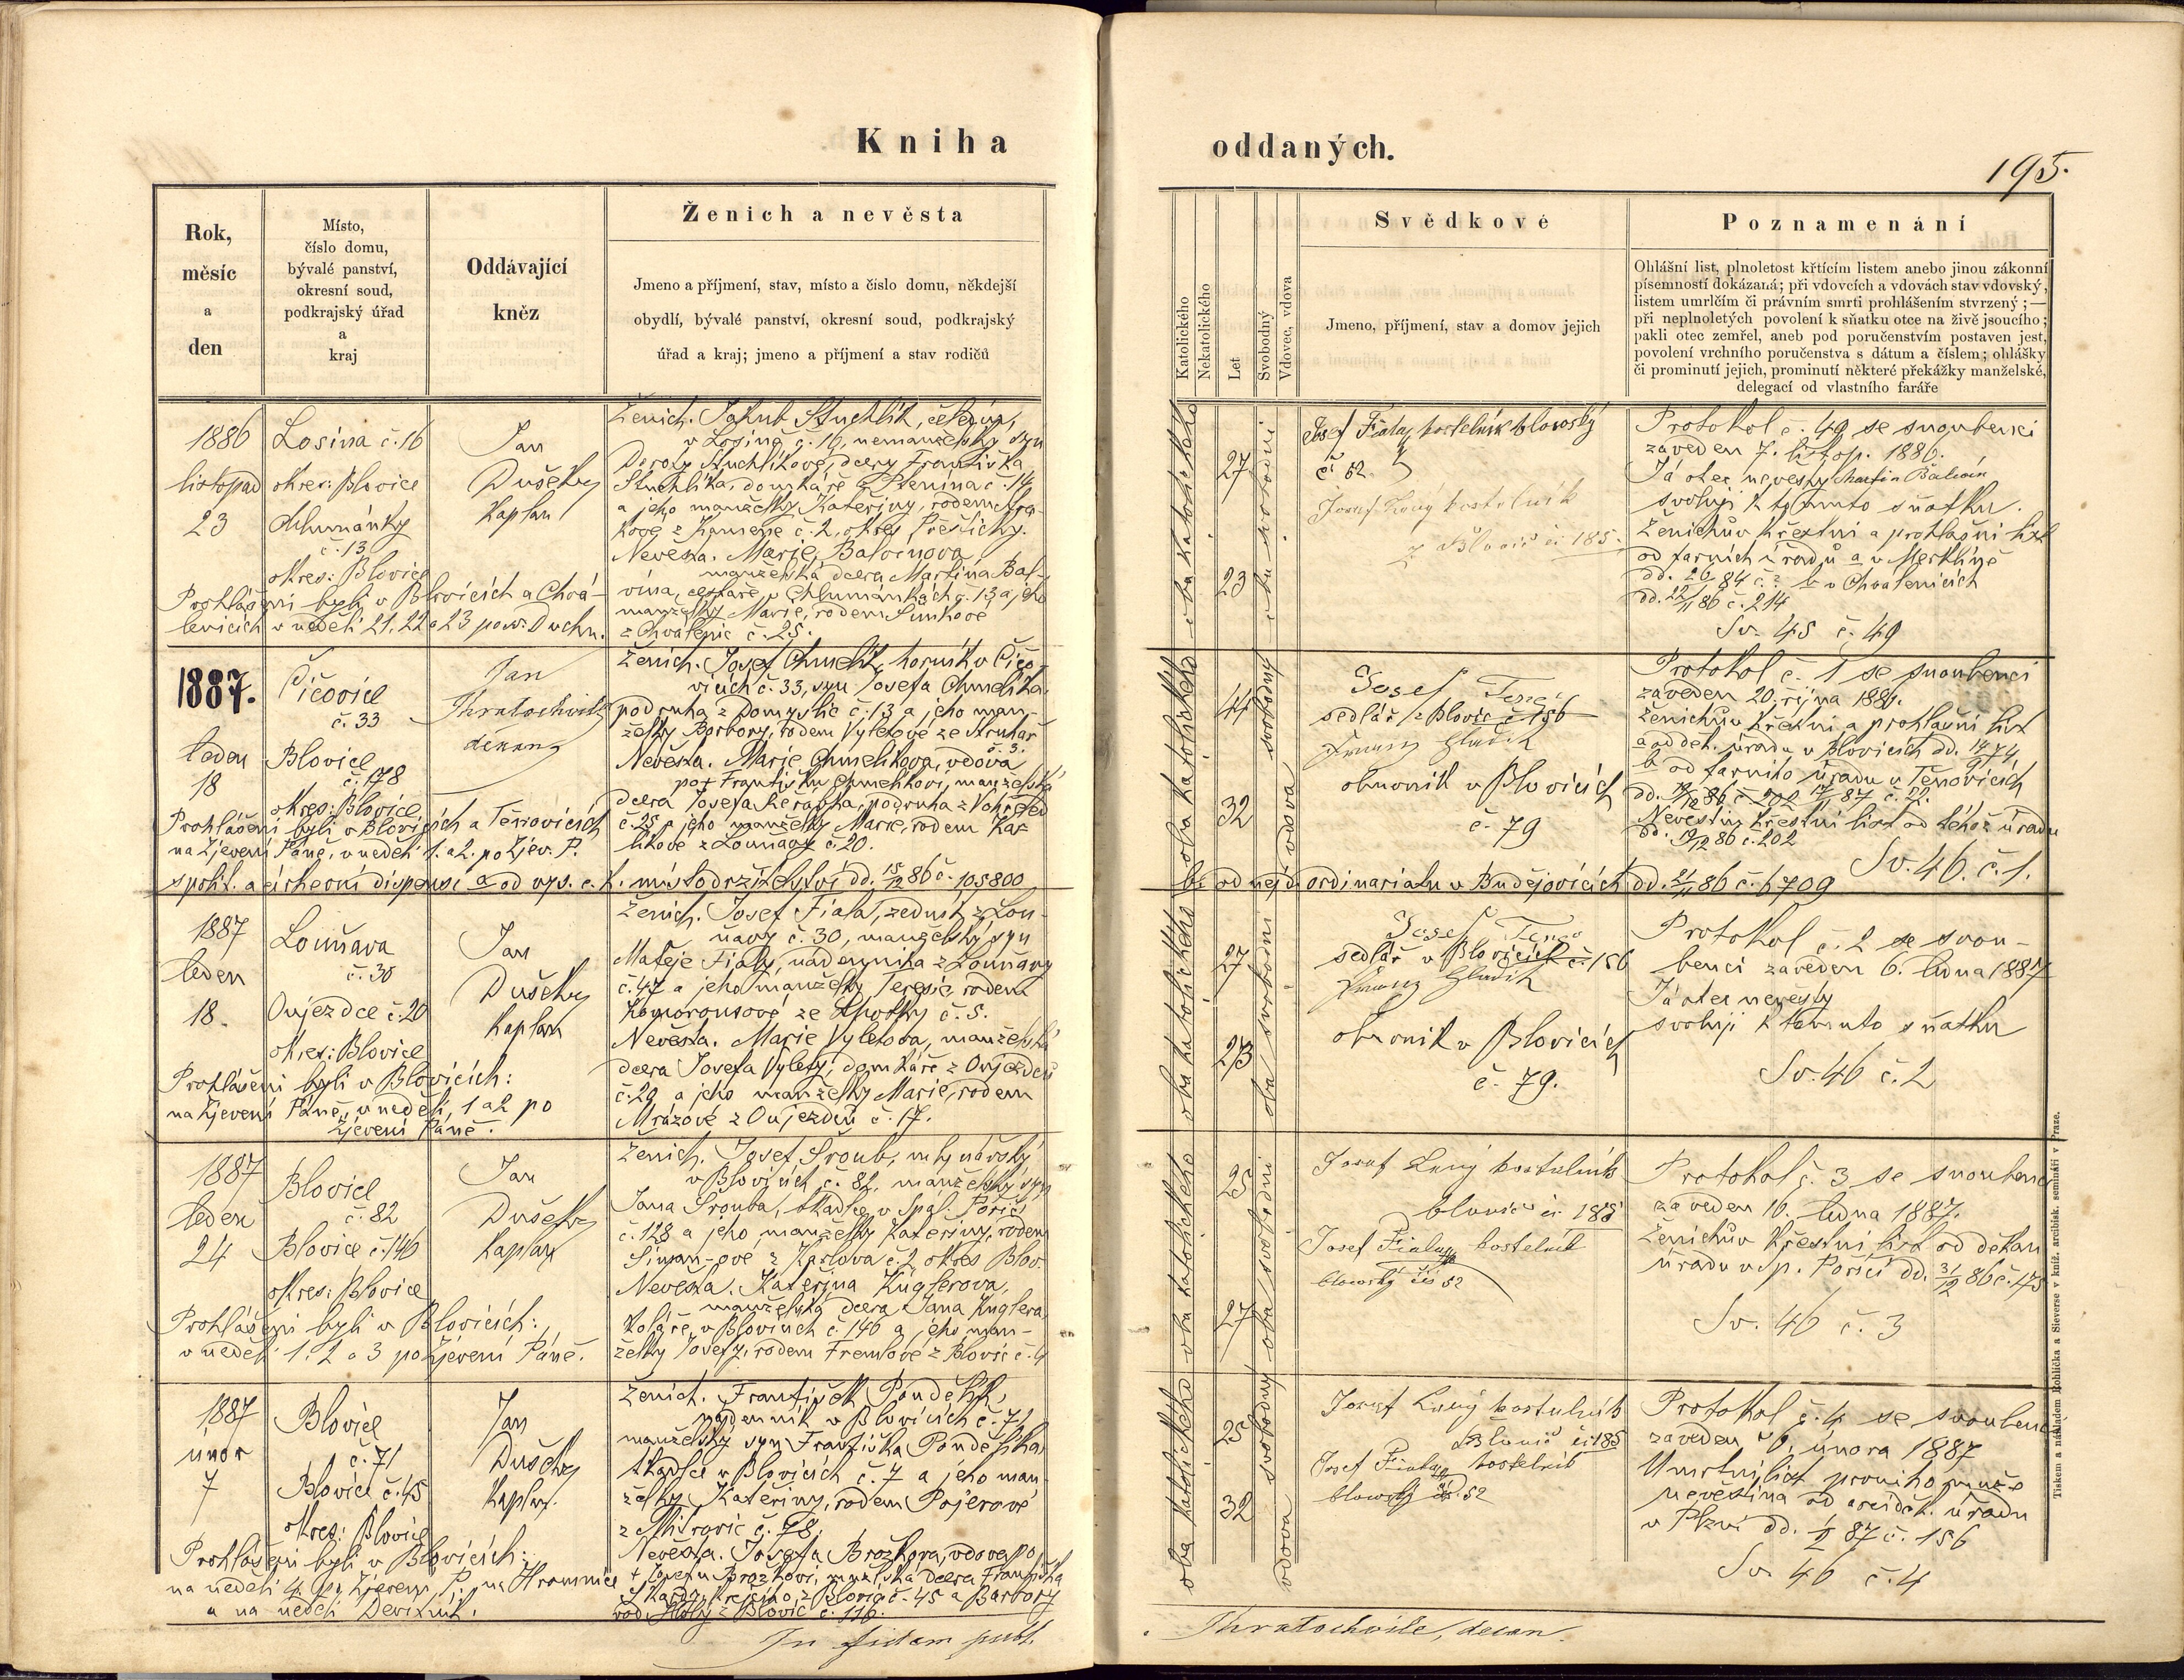 Kniha
oddaných.
195.
Rok,
měsíc
a
den
Místo,
číslo domu,
bývalé panství,
okresní soud,
podkrajský úřad
a
kraj
Oddávající
kněz
Ženich a nevěsta
Jmeno a příjmení, stav, místo a čislo domu, někdejší
obydlí, bývalé panství, okresní soud, podkrajský
úřad a kraj; jmeno a příjmení a stav rodičů
Katolického
Nekatolického
Let
Svobodný
Vdovec, vdova
Svědkové
Jmeno, příjmení, stav a domov jejich
Poznamenání
Ohlášní list, plnoletost křtícím listem anebo jinou zákonní
písemností dokázaná; při vdovcích a vdovách stav vdovský,
listem umrlčím či právním smrti prohlášením stvrzený ;—
při neplnoletých povolení k sňatku otce na živě jsoucího;
pakli otec zemřel, aneb pod poručenstvím postaven jest,
povolení vrchního poručenstva s dátum a číslem; ohlášky
či prominutí jejich, prominutí některé překážky manželské,
delegací od vlastního faráře
1886
listopad
23
Losina č. 16
okres: Blovice
Chlumánky
č. 13
okres: Blovice
Jan
Dušek
kaplan
Prohlášeni byli v Blovicích a Chvá-
lenicích v neděli 21. 22 a 23 po sv. Duchu.
Ženich. Jakub Stuchlík, čeledín,
v Losině č. 16, nemanželský syn
Doroty Stuchlíkové, dcery Františka
Stuchlíka, domkáře z č. 14
a jeho manželky Kateřiny, rodem
kové z Kamene č. 2, okres Přeštický.
Nevěsta. Marie Balvínova
manželská dcera Martina Bal-
vína, cestáře v Chlumánkách č. 13 a jeho
manželky Marie, rodem Šimkové
z Chválenic č. 25.
oba katolického
27
23
oba svobodni
Josef Fiala, kostelník blovský
č 52.
Josef Luný kostelník
z Blovic či 185.
Protokol č. 49 se snoubenci
zaveden 7. listop. 1886.
Já otec nevěsty Martin Balvín
svoluji k tomuto sňatku.
Ženichův křestní a prohlašní list
od farních úřadů a v Merklíně
dd. 26/ 84 č. b v Chválenicích
dd. 22/11 86 č. 214
Sv. 45 č. 49
1887.
leden
18
Číčovice
č. 33
Blovice
č. 178
okres: Blovice
Jan
Thratochvile
děkan
Prohlášeni byli v Blovicích a Těnovicích
na Zjevení Páně, v neděli 1. a 2. po Zjev. P.
s polit. a církevní dispensí a od vys. c. k. místodržitelství dd. 15/12 86 č. 105800
Ženich. Josef Chmelík, horník v Číčo-
vicích č. 33, syn Josefa Chmelíka
podruha z Domyslic č. 13 a jeho man-
želky Barbory, rodem Vyletové ze Struhař
č. 3.
Nevěsta. Marie Chmelíkova, vdova
po † Františku Chmelíkovi, manželská
dcera Josefa podruha z
č. 25 a jeho manželky Marie, rodem Kar-
líkové z Louňavy č. 20.
oba katolického
44
32
svobodný
vdova
Josef
sedlář z Blovic č 156
Franz Hladík
obuvník v Blovicích
č. 79
Protokol č. 1 se snoubenci
zaveden 20. října 1886.
Ženichův křestní a prohlašní list
a od děk. úřadu v Blovicích dd. 14/9 74
b od farního úřadu v Těnovicích
dd. 19/12 86 č. 202 17/1 87 č. 12.
Nevěstin křestní list od téhož úřadu
dd. 19/12 86 č. 202
Sv. 46. č. 1.
b. od nejd. ordinariatu v Budějovicích dd. 21/11 86 č. 6709
1887
leden
18.
Louňava
č. 30
Oujezdce č. 20
okres: Blovice
Jan
Dušek
kaplan
Prohlášeni byli v Blovicích:
na Zjevení Páně, v neděli, 1 a 2 po
Zjevení Páně.
Ženich. Josef Fiala, zedník z Lou-
ňavy č. 30, manželský syn
Matěje Fialy, nádenníka z Louňavy
č. 47 a jeho manželky Teresie rodem
Komorousové ze Lhotky č. 5.
Nevěsta. Marie Vyletova, manželská
dcera Josefa Vylety, domkáře z Oujezdce
č. 20 a jeho manželky Marie, rodem
Mrázové z Oujezdců č. 17.
oba katolického
27
23
oba svobodni
Josef
sedlář v Blovicích č 156
Franz Hladík
obuvník v Blovicích
č. 79.
Protokol č. 2 se snou-
benci zaveden 6. ledna 1887
Já otec nevěsty
svoluji k tomuto sňatku
Sv. 46 č. 2
1887
leden
24
Blovice
č. 82
Blovice č. 146
okres: Blovice
Jan
Dušek
kaplan
Prohlášeni byli v Blovicích:
v neděli 1. 2 a 3 po Zjevení Páně.
Ženich. Josef Šroub, mlynářský
v Blovicích č. 82, manželský syn
Jana Šrouba, tkadlce v Spál. Poříčí
č. 128 a jeho manželky Kateřiny, rodem
Šimanové z Karlova č. 2 okres Blov.
Nevěsta. Kateřina Kuglerova,
manželská dcera Jana Kuglera
koláře v Blovicích č. 146 a jeho man-
želky Josefy, rodem Fremlové z Blovic č. 4
oba katolického
25
27
oba svobodni
Josef Luný kostelník
blovic či 185
Josef Fiala kostelník
blowský čís 52
Protokol č. 3 se snoubenci
zaveden 16. ledna 1887.
Ženichův křestní list od děkan
úřadu v Sp. Poříčí dd. 31/12 86 č. 175
Sv. 46 č. 3
1887
únor
7
Blovice
č. 71
Blovice č. 45
okres: Blovice
Jan
Dušek
kaplan.
Prohlášeni byli v Blovicích:
na neděli 4. po Zjevení P., na Hromnice
a na neděli Devítník.
Ženich. František Pondělík,
nádenník v Blovicích č. 71
manželský syn Františka Pondělíka
tkadlce v Blovicích č. 7 a jeho man-
želky Kateřiny, rodem Pojerové
z Mitrovic č. 78.
Nevěsta. Josefa Brožkova, vdova po
† Josefu Brožkovi, manželská dcera Františka
krejčího z Blovic č. 45 a Barbory
rod. z Blovic č. 116.
oba katolického
25
32
svobodný
vdova
Josef Luný kostelník
Blovic či 185
Josef Fiala kostelník
blowský čís. 52
Protokol č. 4 se snoubenci
zaveden 6. února 1887
Úmrtní list prvního muže
nevěstina od arciděk. úřadu
v Plzni dd. 1/2 87 č. 156
Sv. 46 č. 4
In fidem publ.
Thratochvile, decan.
Tiskem a nákladem Rohlíčka a Sieverse v kníž. arcibisk. semináři v Praze.